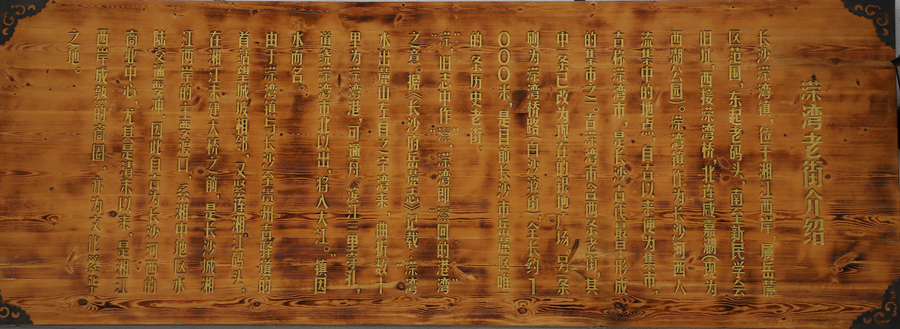 溁湾老街介绍
长沙溁湾镇，位于湘江西岸，属岳麓
区范围，东起老码头，南至新民学会
旧址，西接溁湾桥，北连咸嘉湖（现为
西湖公园）。溁湾镇作为长沙河西人
流集中的地点，自古以来便为集市，
古称溁湾市，是长沙古代最早形成
的集市之一。古溁湾市含两条老街，其
中一条已改为现在的银地广场，另一条
则为溁湾桥路（白沙液街），全长约1
000米，是目前长沙市岳麓区唯
一的一条历史老街。
“溁”，旧志中作“潆”，溁湾即“潆回的港湾”
之意。据《长沙府岳麓志》记载：“溁湾
水出麓山左自之字湾来，曲折数十
里为溁湾港，可通舟，滨江三里穿孔
道绕溁湾市北以出，将入大江。”镇因
水而名。
由于溁湾镇与长沙至贵州古驿道的
首站望城坡相邻，又紧连湘江码头，
在湘江未建大桥之前，是长沙城湘
江两岸的主要渡口，系湘中地区水
陆交通要冲，因此自古为长沙河西的
商业中心，尤其是清末以来，是湘江
西岸成熟的商圈，亦为文化繁华
之地。